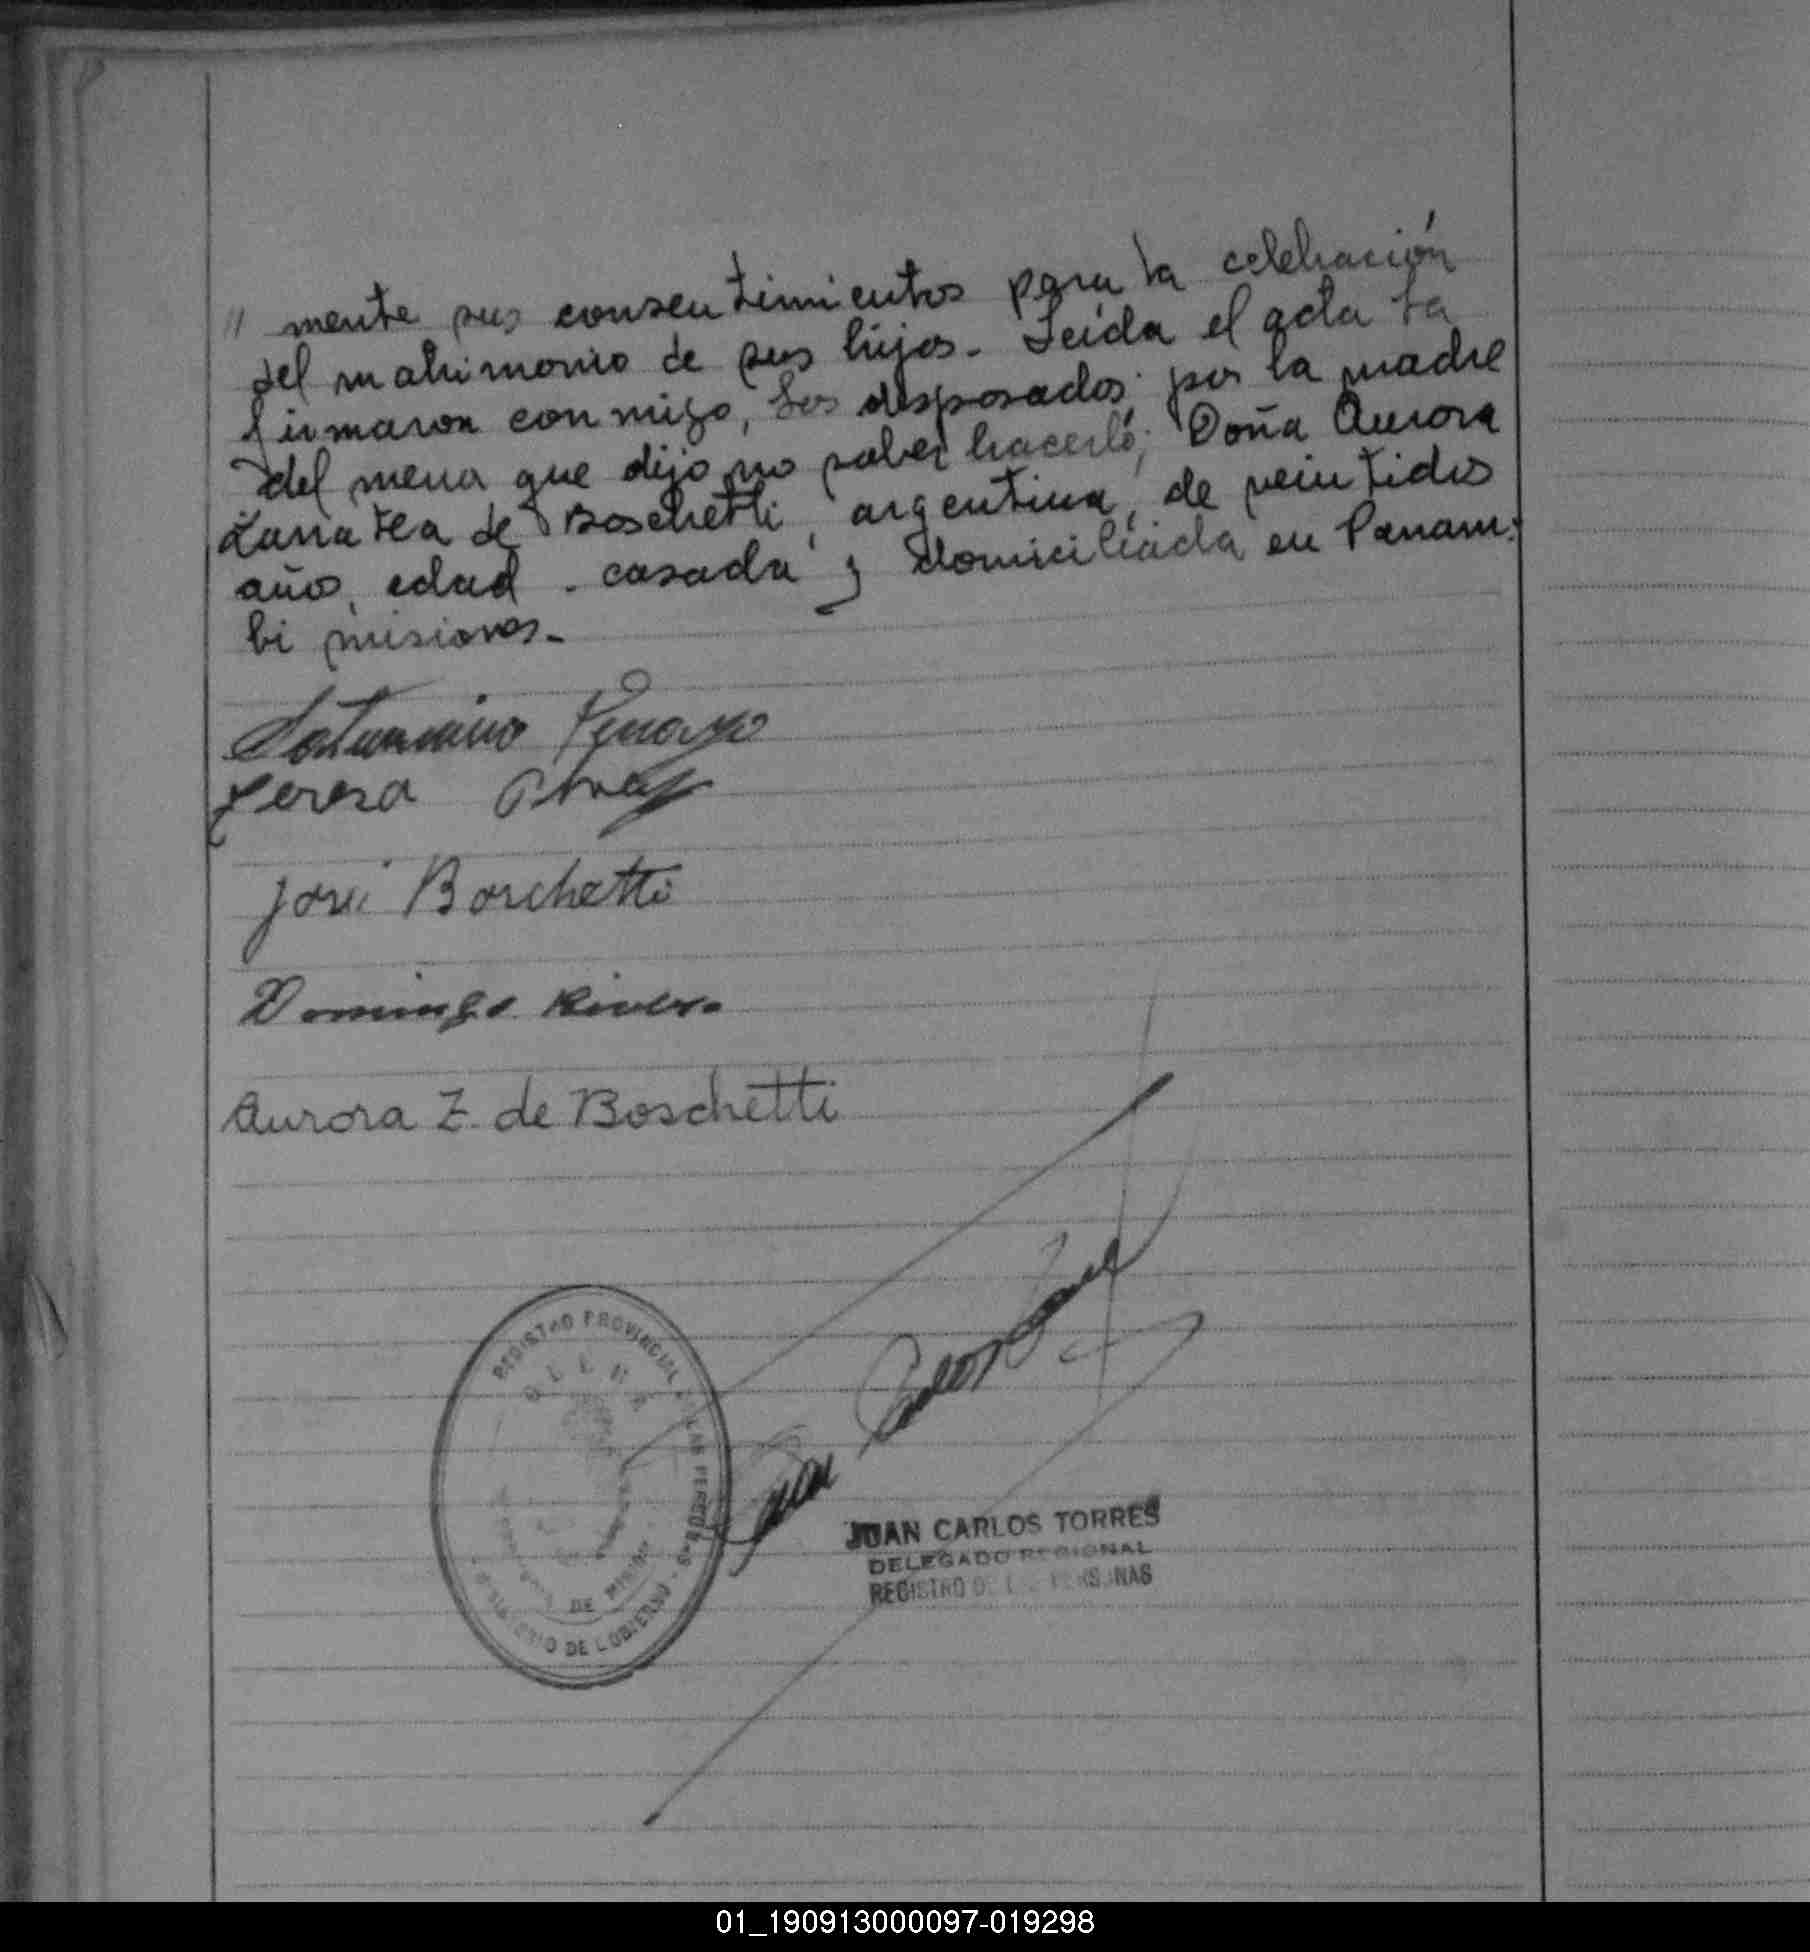 // mente sus consentimientos para la celebración
del matrimonio de sus hijos.- Leída el acta la
firmaron conmigo, los desposados; por la madre
del menor que dijo no saber hacerlo; Doña Aurora
de Boschetti, argentina, de veintidos
año, edad - casada y domiciliada en Panam-
bi misiones.-
Saturnino
Teresa
José Boschetti
Domingo Rivero
Aurora Z. de Boschetti
REGISTRO PROVINCIAL DE LAS PERSONAS
MINISTERIO DE GOBIERNO
DE MISIONES
Juan Carlos Torres
JUAN CARLOS TORRES
DELEGADO REGIONAL
REGISTRO DE LAS PERSONAS
01_190913000097-019298